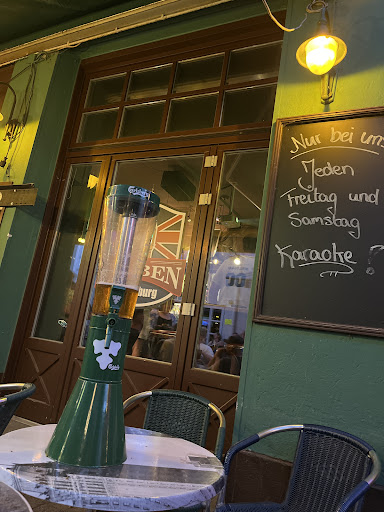 Nur bei uns
Jeden
Freitag und
Samstag
Karaoke!
BEN
burg
Carlsberg